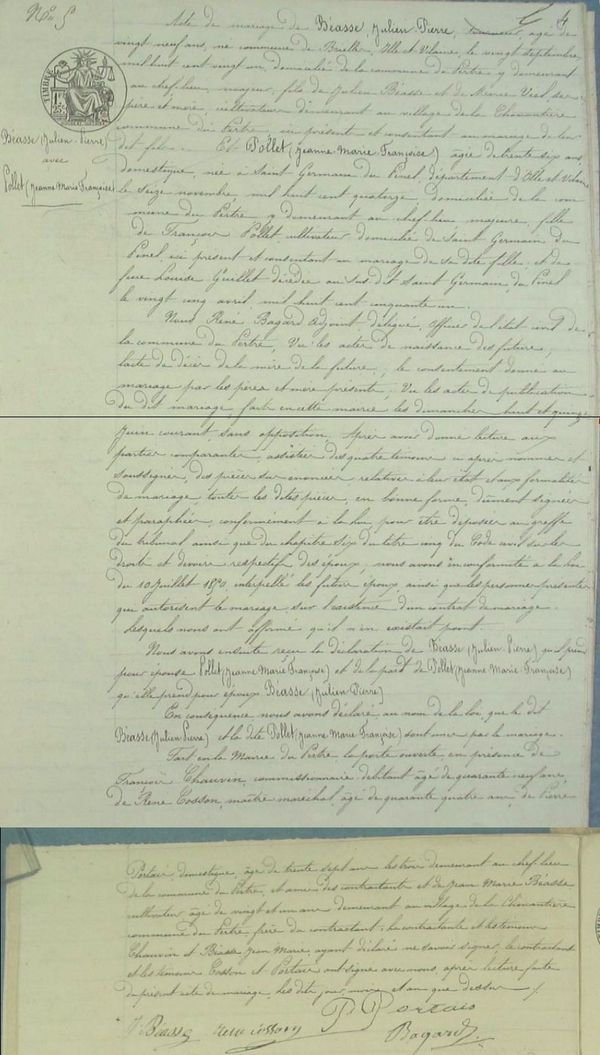 No 5
4
Acte de mariage de Béasse, Julien Pierre, âgé de
vingt neuf ans, né commune de Brielles, Ille et Vilaine, le vingt septembre
mil huit cent vingt un, domicilié de la commune du Pertre y demeurant
au chef-lieu, majeur, fils de Julien Béasse et de Viel, ses
père et mère, cultivateurs demeurant au village de la Chonantière
commune du Pertre, ici présent et consentant au mariage de leur
dit fils. Et Pollet (Jeanne Marie Françoise) âgée de trente six ans
domestique, née à Saint Germain du Pinel, département d'Ille et Vilaine
le seize novembre mil huit cent quatorze, domiciliée de la com
mune du Pertre, y demeurant au chef-lieu majeure, fille
de François Pollet cultivateur domicilié de Saint Germain du
Pinel, ici présent et consentant au mariage de sa dite fille, et de
feue Louise Guillet décédée au sus dit Saint Germain du Pinel
le vingt cinq avril mil huit cent cinquante un.
TIMBRE
Béasse (Julien-Pierre)
avec
Pollet (Jeanne Marie Françoise)
Nous René Bagard Adjoint délégué, Officier de l'état civil de
la commune du Pertre, Vu les actes de naissance des futurs,
l'acte de décès de la mère de la future, le consentement donné au
mariage par les pères et mère présents, Vu les actes de publication
du dit mariage, faits en cette mairie les dimanches huit et quinze
Juin courant sans opposition, Après avoir donné lecture aux
parties comparantes, assistées des quatre témoins ci après nommés et
soussignés, des pièces sus énoncées relatives à leur état et aux formalités
du mariage, toutes les dites pièces, en bonne forme, dûment signées
et paraphées, conformément à la loi, pour être déposées au greffe
du tribunal ainsi que du chapitre six du titre cinq du Code civil sur les
droits et devoirs respectifs des époux, nous avons en conformité à la loi
du 10 Juillet 1850, interpellé les futurs époux ainsi que les personnes présentes
qui autorisent le mariage sur l'existence d'un contrat de mariage.
Lesquels nous ont affirmé qu'il n'en existait point.
Nous avons ensuite reçu la déclaration de Béasse (Julien Pierre) qu'il prend
pour épouse Pollet (Jeanne Marie Françoise) et de la part de Pollet (Jeanne Marie Françoise)
qu'elle prend pour époux Béasse (Julien Pierre)
En conséquence nous avons déclaré au nom de la loi que le dit
Béasse (Julien Pierre) et la dite Pollet (Jeanne Marie Françoise) sont unis par le mariage.
Fait en la Mairie du Pertre la porte ouverte en présence de
François Chauvin, commissionnaire débitant âgé de quarante neuf ans,
de René Cosson, maître maréchal, âgé de quarante quatre ans, de Pierre
Portais, domestique, âgé de trente sept ans les trois demeurant au chef-lieu
de la commune du Pertre, et amis des contractants et de Jean Marie Béasse
cultivateur âgé de vingt et un ans demeurant au village de la Chonantière
commune du Pertre, frère du contractant; la contractante et les témoins
Chauvin et Béasse Jean Marie, ayant déclaré ne savoir signer, le contractant
et les témoins Cosson et Portais ont signé avec nous, après lecture faite
du présent acte de mariage, les dits jour, mois et an que dessus
J Béasse rené cosson P Portais
Bagard